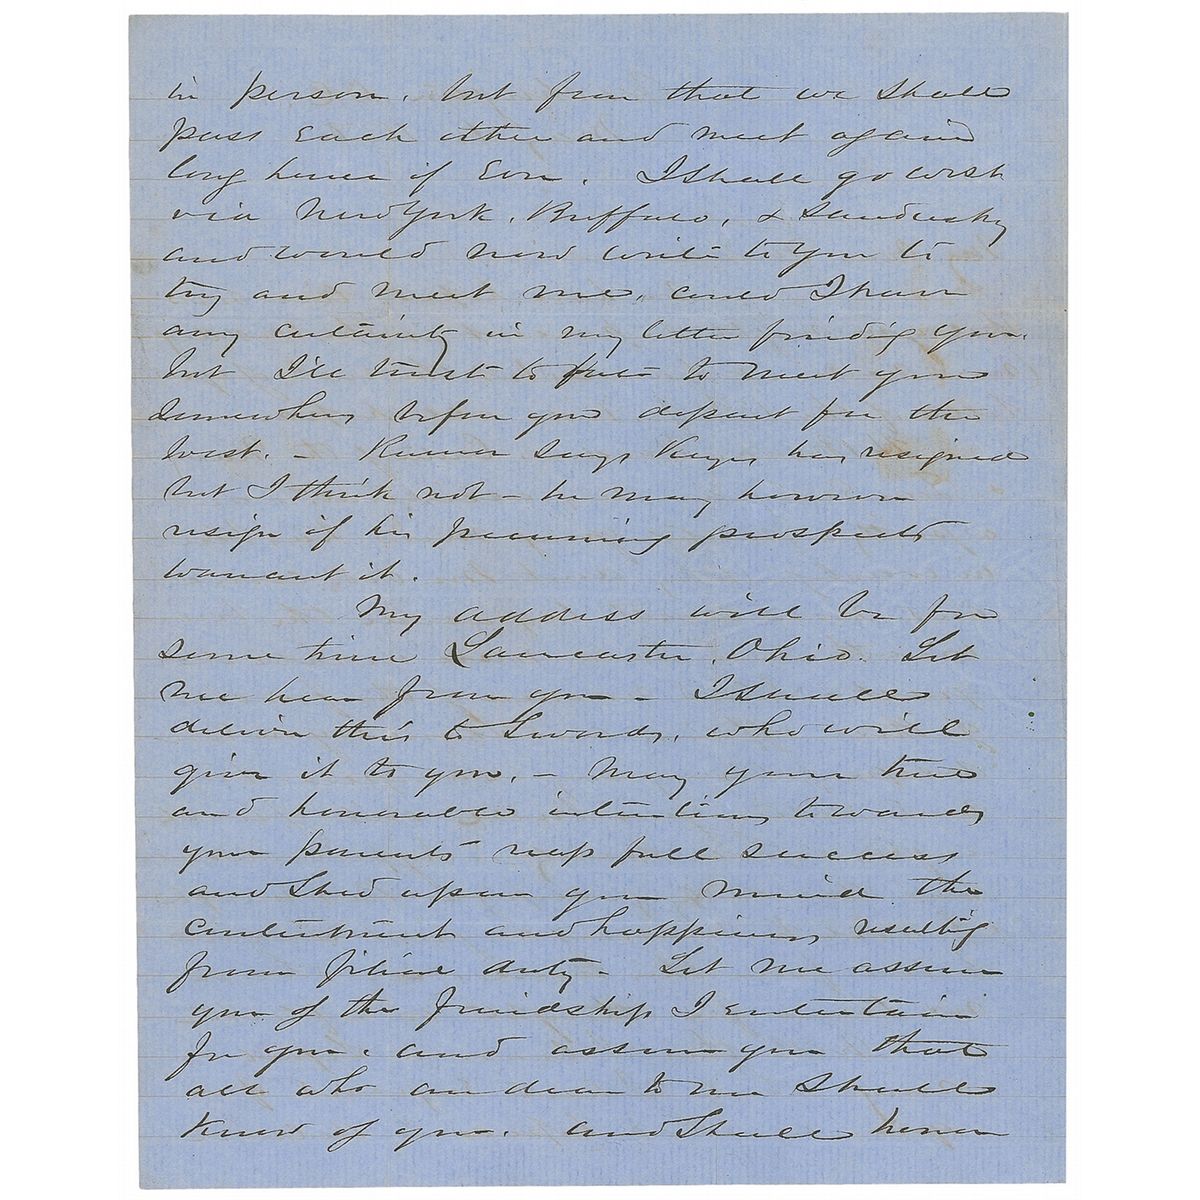 in person, but fear that we shall
pass each other and meet again
long hence if ever. I shall go west
via New York, Buffalo, & Sandusky
and would now write to you to
try and meet me, could I have
any certainty in my letter finding you.
but I'll trust to fate to meet you
somewhere before you depart for the
West. – Rumor says Keyes has resigned
but I think not – he may however
resign if his pecuniary prospects
warrant it.
My address will be for
some time Lancaster, Ohio. Let
me hear from you – I shall
deliver this to Swords, who will
give it to you. – May your true
and honorable intentions towards
your parents reap full success
and shed upon your mind the
contentment and happiness resulting
from filial duty – Let me assure
you of the friendship I entertain
for you, and assure you that
all who are dear to me shall
know of you, and shall honor